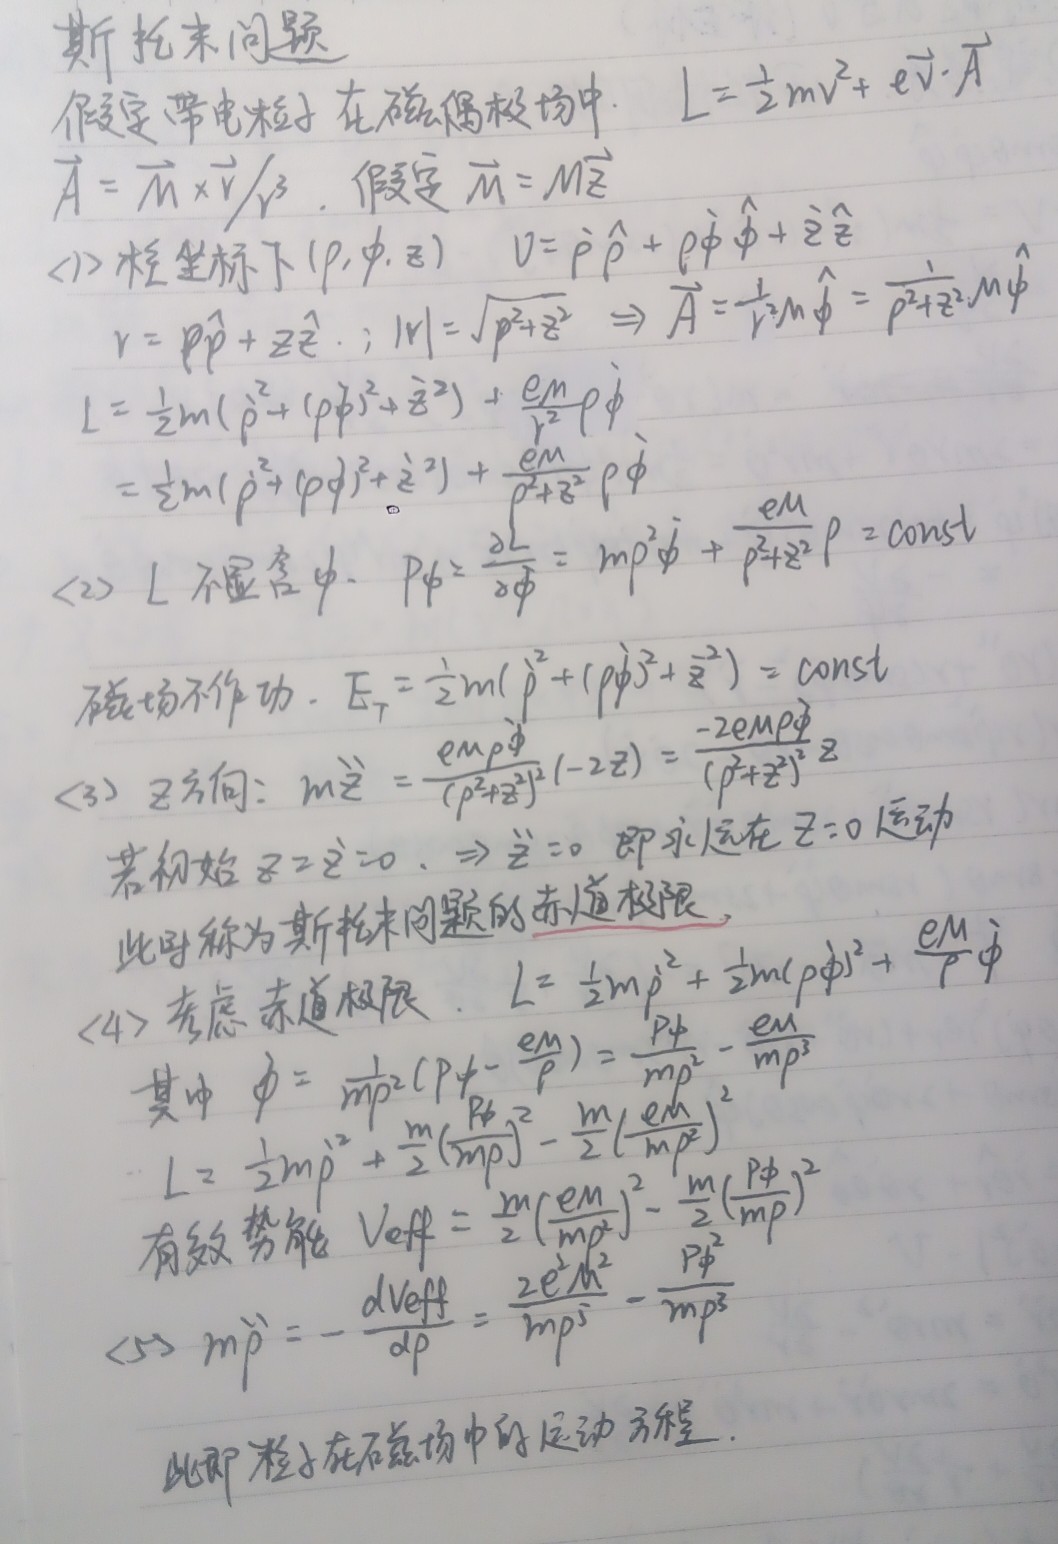 斯托末问题
假定带电粒子在磁偶极场中. L = ½mv² + e\vec{v}·\vec{A}
\vec{A} = \vec{M}×\vec{r}/r³. 假定 \vec{M} = M\vec{z}
<1> 柱坐标下(ρ, φ, z) v = \dot{ρ}\hat{ρ} + ρ\dot{φ}\hat{φ} + \dot{z}\hat{z}
r = ρ\hat{ρ} + z\hat{z}. ; |r| = \sqrt{ρ²+z²} ⇒ \vec{A} = \frac{1}{r²}M\hat{φ} = \frac{1}{ρ²+z²}M\hat{φ}
L = ½m(\dot{ρ}² + (ρ\dot{φ})² + \dot{z}²) + \frac{eM}{r²}ρ\dot{φ}
= ½m(\dot{ρ}² + (ρ\dot{φ})² + \dot{z}²) + \frac{eM}{ρ²+z²}ρ\dot{φ}
<2> L 不显含φ. Pφ = \frac{∂L}{∂\dot{φ}} = mρ²\dot{φ} + \frac{eM}{ρ²+z²}ρ = const
磁场不作功. E_T = ½m(\dot{ρ}² + (ρ\dot{φ})² + \dot{z}²) = const
<3> z方向: m\ddot{z} = \frac{eMρ\dot{φ}}{(ρ²+z²)²}(-2z) = \frac{-2eMρ\dot{φ}}{(ρ²+z²)²}z
若初始 z = \dot{z} = 0. ⇒ \ddot{z} = 0 即永远在 z=0 运动
此时称为斯托末问题的赤道极限.
<4> 考虑赤道极限. L = ½m\dot{ρ}² + ½m(ρ\dot{φ})² + \frac{eM}{ρ}\dot{φ}
其中 \dot{φ} = \frac{1}{mρ²}(Pφ - \frac{eM}{ρ}) = \frac{Pφ}{mρ²} - \frac{eM}{mρ³}
L = ½m\dot{ρ}² + \frac{m}{2}(\frac{Pφ}{mρ})² - \frac{m}{2}(\frac{eM}{mρ²})²
有效势能 Veff = \frac{m}{2}(\frac{eM}{mρ²})² - \frac{m}{2}(\frac{Pφ}{mρ})²
<5> m\ddot{ρ} = -\frac{dVeff}{dρ} = \frac{2e²M²}{mρ⁵} - \frac{Pφ²}{mρ³}
此即粒子在磁场中的运动方程.